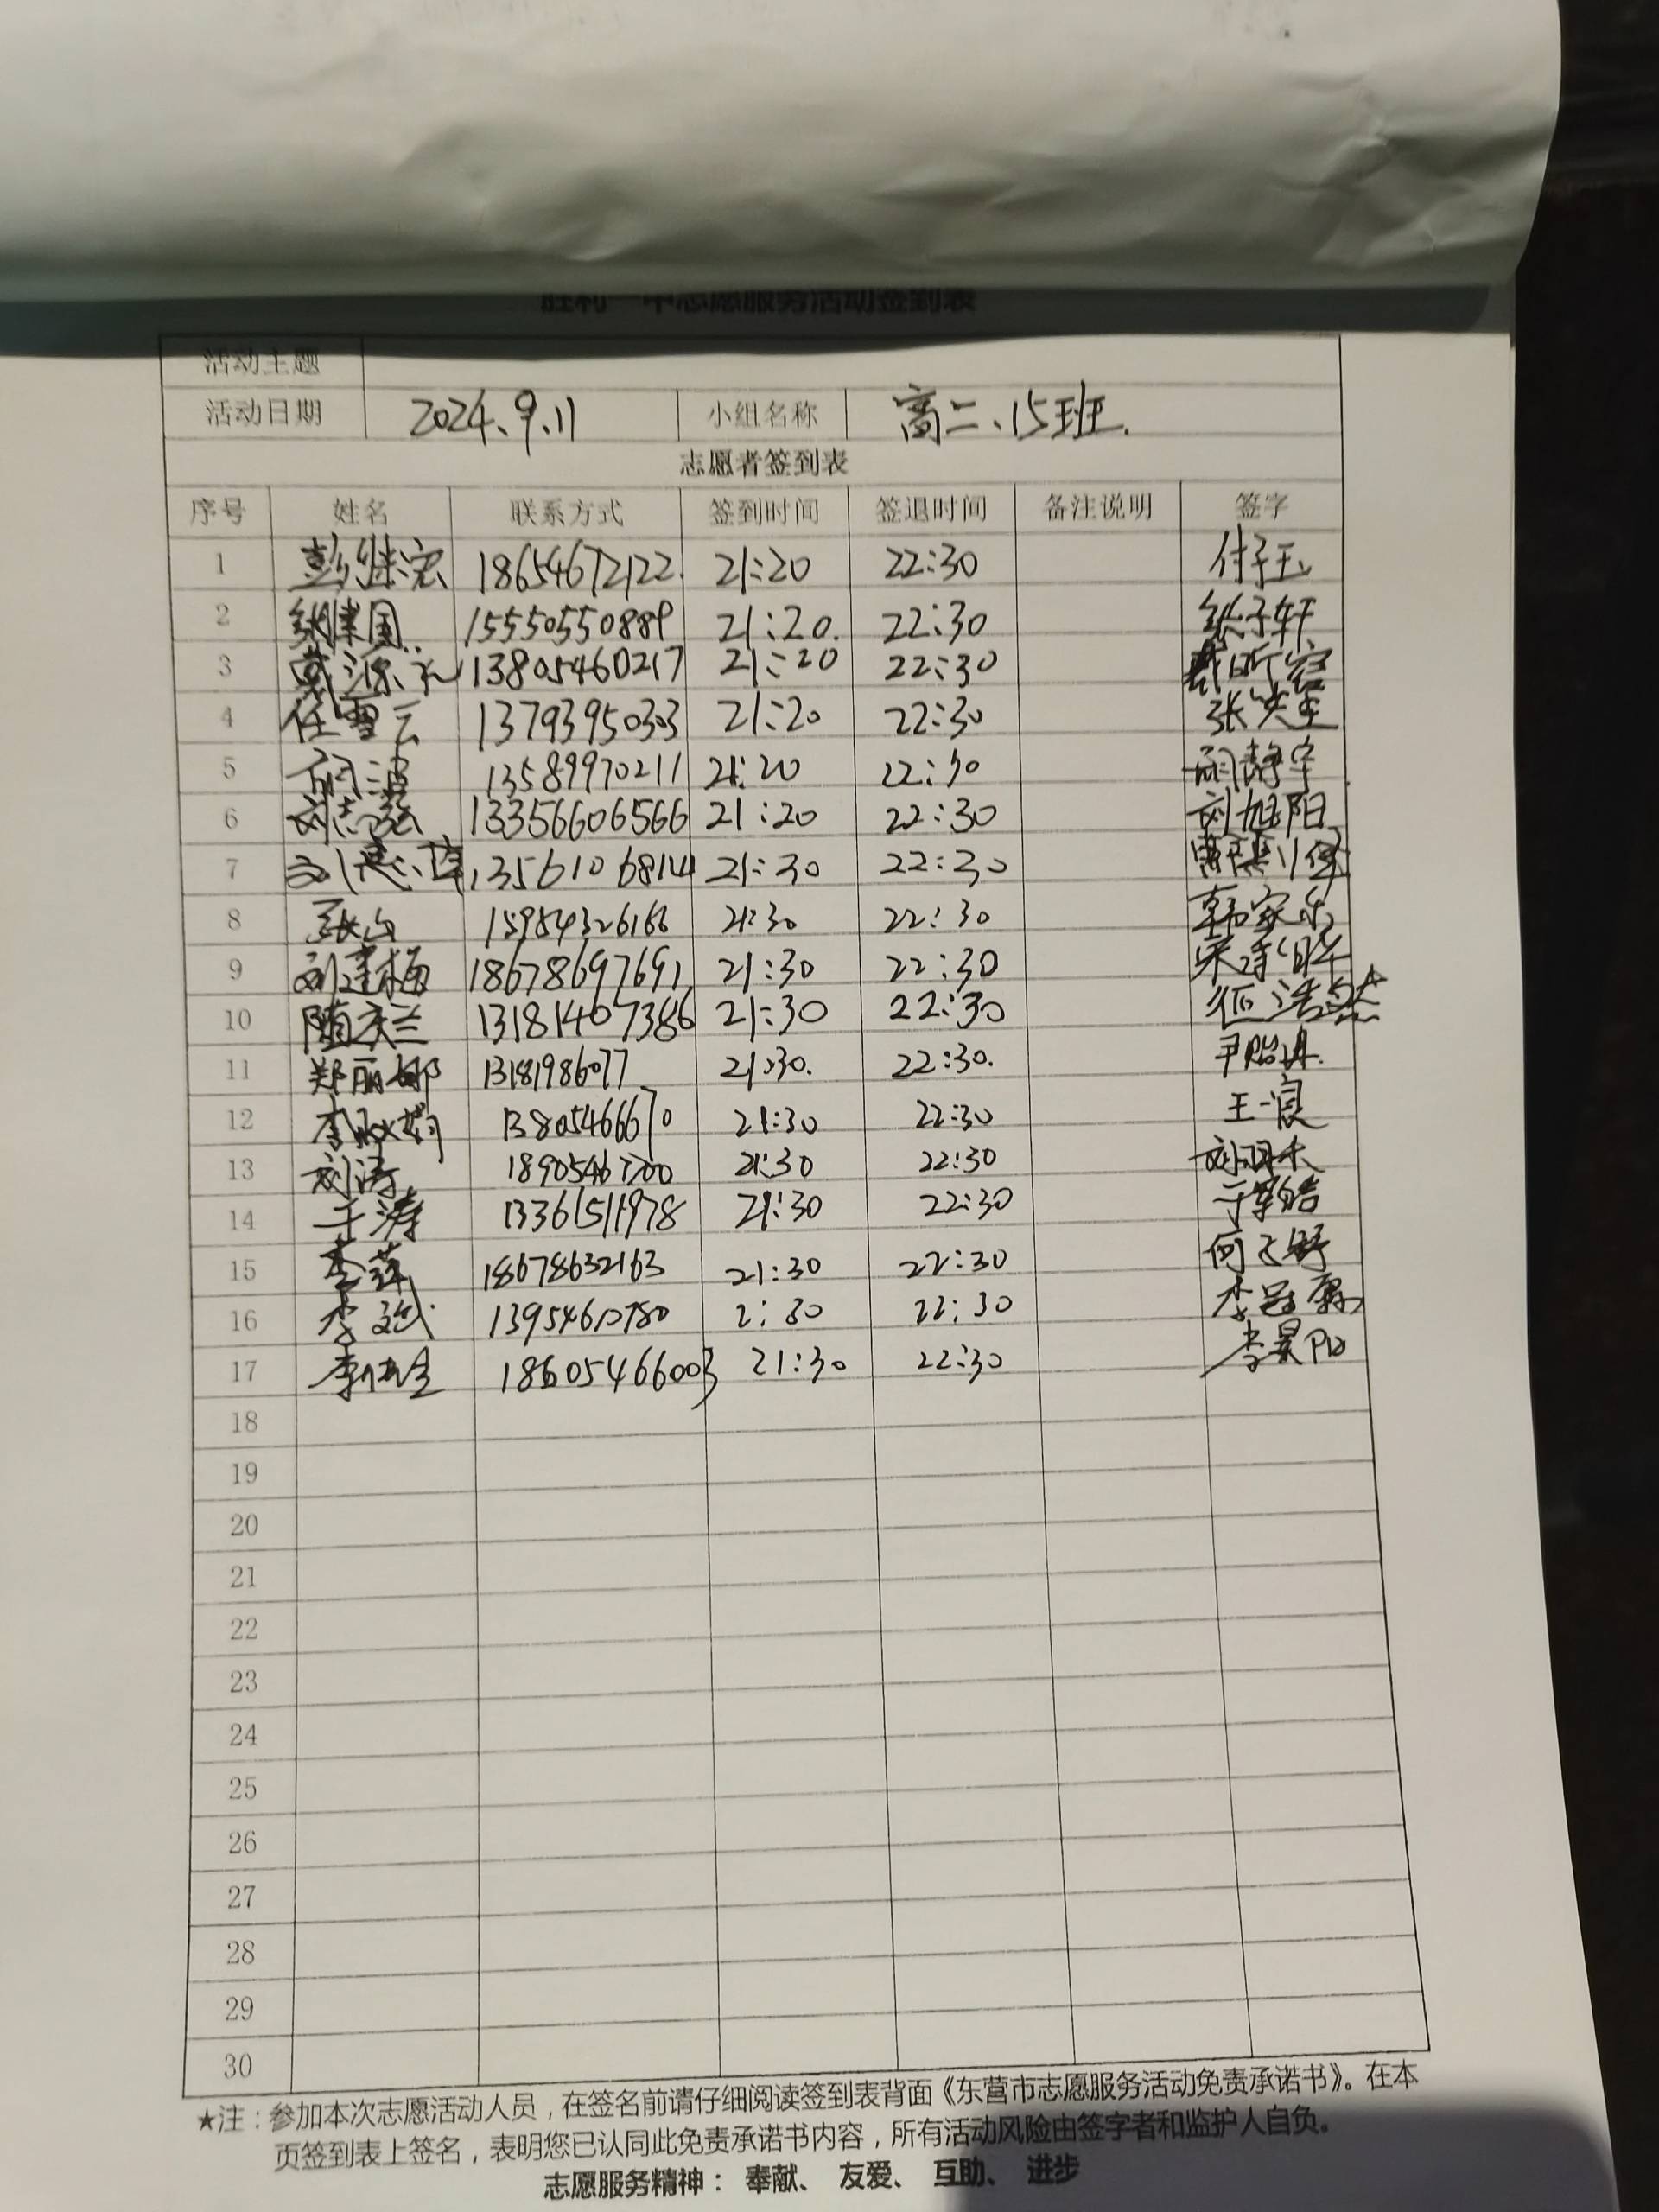 胜利一中志愿服务活动签到表
活动主题
活动日期 2024.9.11 小组名称 高二、15班.
志愿者签到表
序号 姓名 联系方式 签到时间 签退时间 备注说明 签字
1 彭继宏 18654672122 21:20 22:30 付子玉
2 张建国 15550550889 21:20. 22:30 张子轩
3 13805460217 21:20 22:30
4 任雪云 13793950303 21:20 22:30 张
5 波 13589970211 21:20 22:30 静宇
6 刘志强 13356606566 21:20 22:30 刘旭阳
7 13561068114 21:30 22:30
8 张 15954326166 21:30 22:30 韩家乐
9 刘建梅 18678697691 21:30 22:30 宋
10 随庆兰 13181407386 21:30 22:30 浩然
11 郑丽娜 13181986077 21:30. 22:30. 尹贻
12 李 13805466670 21:30 22:30 王一
13 刘涛 21:30 22:30 刘羽
14 于涛 13361511978 21:30 22:30 于
15 李萍 18678632163 21:30 22:30 何
16 李斌 22:30 李
17 李 18605466003 21:30 22:30 李景阳
18
19
20
21
22
23
24
25
26
27
28
29
30
★注：参加本次志愿活动人员，在签名前请仔细阅读签到表背面《东营市志愿服务活动免责承诺书》。在本
页签到表上签名，表明您已认同此免责承诺书内容，所有活动风险由签字者和监护人自负。
志愿服务精神： 奉献、 友爱、 互助、 进步